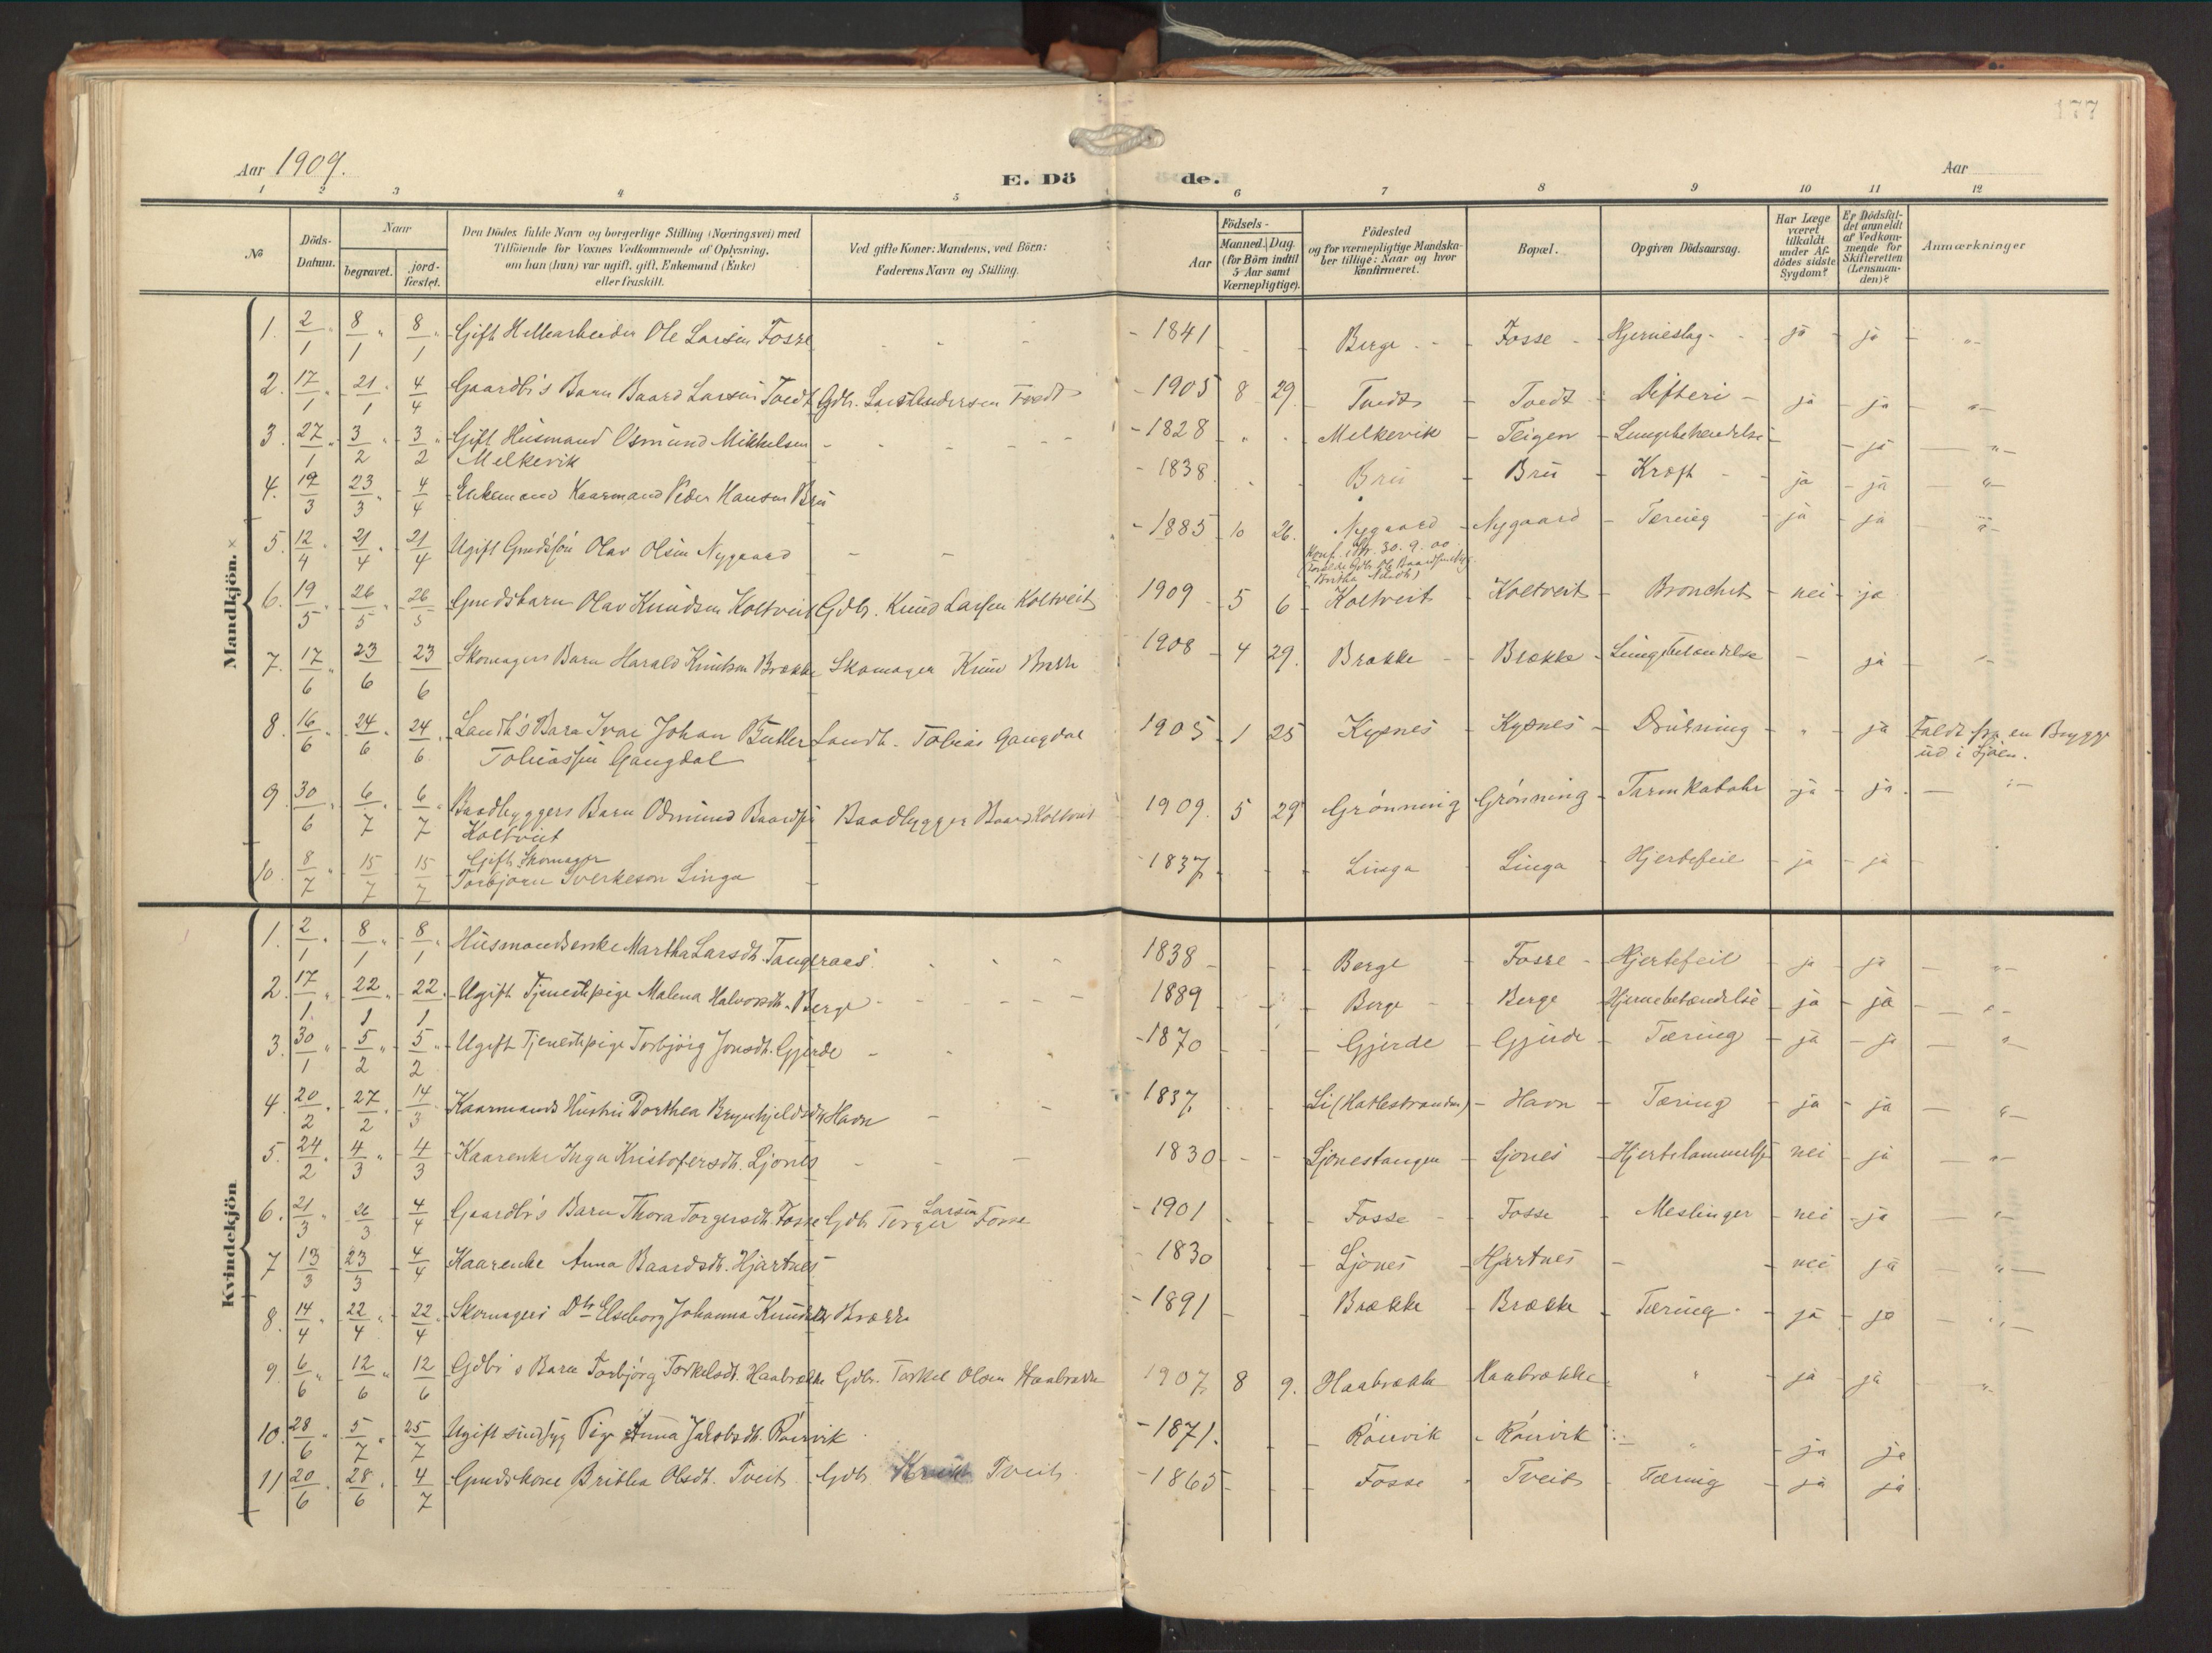 177
Aar 1909.
E. Dö de.
Aar
1 2 3 4 5 6 7 8 9 10 11 12
№
Döds-Datum.
Naar
begravet.
jord-fæstet.
Den Dödes fulde Navn og borgerlige Stilling (Næringsvei) med
Tilföiende for Voxnes Vedkommende af Oplysning,
om han (hun) var ugift, gift, Enkemand (Enke)
eller fraskilt.
Ved gifte Koner: Mandens, ved Börn:
Faderens Navn og Stilling.
Födsels-
Aar
Maaned. Dag
(for Börn indtil
5 Aar samt
Værnepligtige).
Födested
og for værnepligtige Mandska-
ber tillige: Naar og hvor
konfirmeret.
Bopæl.
Opgiven Dödsaarsag.
Har Læge
været
tilkaldt
under Af-
dödes sidste
Sygdom?
Er Dödsfal-
det anmeldt
af Vedkom-
mende for
Skifteretten
(Lensman-
den)?
Anmærkninger
Mandkjön.
1. 2/1 " 8/1 " 8/1 " Gift Ole Larsen Fosse - - - 1841 - - Berge - Fosse - Hjerneslag - ja - ja - "
2. 17/1 " 21/1 " 4/4 Gaardbr's Barn Baard Larsen Tvedt Gdbr. Lars Andersen Tvedt - 1905 8 29. Tvedt - Tvedt - Difteri - ja - ja - "
3. 27/1 " 3/2 " 3/2 " Gift Husmand Osmund Mikkelsen - - - 1828 " " Melkevik - Teigen - Lungebetændelse - ja - "
Melkevik
4. 19/3 23/3 " 4/4 Enkemand Kaarmand Peder Hansen Bru - 1838. - - Bru - Bru - Kræft - ja - ja - "
5. 12/4 " 21/4 " 21/4 Ugift Gmdssön Olav Olsen Nygaard - - - 1885 10 26. Nygaard - Nygaard - Tæring - ja - ja - "
Konf. 30.9.00.
6. 19/5 26/5 " 26/5 Gmdsbarn Olav Knudsen Koltveit Gdbr. Knud Larsen Koltveit 1909 - 5 6 Koltveit - Koltveit - Bronchit - nei - ja
7. 17/6 " 23/6 23/6 Skomagers Barn Harald Knutson Brække Skomager Knud Brække 1908 - 4 29. Brække - Brække - Lungebetændelse - ja - "
8. 16/6 " 24/6 " 24/6 " Landh's Barn Ivar Johan Butler Landh. Tobias Gangdal 1905 - 1 25 Kysnes - Kysnes - Drukning - " - ja Faldt fra en Brygge
Tobiassön Gangdal ud i Sjöen.
9. 30/6 " 6/7 " 6/7 " Baadbyggers Barn Odmund Baardsön Baadbygger Baard Koltveit 1909. 5 29 Grönning Grönning - Tarmkatahr - ja - ja. - "
Koltveit
Gift Skomager
10. 8/7 15/7 15/7 Torbjørn Sverkeson Linga - 1837. - - Linga - Linga - Hjertefeil - ja - ja -
Kvindekjön
1. 2/1 " 8/1 " 8/1 " Husmandsenke Martha Larsdt. Tangeraas - - - 1838 - - Berge - Fosse - Hjertefeil - ja - ja - "
2. 17/1 " 22/1 - 22/1. Ugift Tjenestepige Malena Halvorsdt. Berge - - - 1889 - - Berge - Berge Hjernebetændelse - ja - ja - "
3. 30/1 " 5/2 " 5/2 " Ugift Tjenestepige Torbjörg Jonsdt. Gjerde - - - 1870 - - Gjerde - Gjerde - Tæring - ja - ja - "
4. 20/2 " 27/2 14/3 Kaarmands Hustru Dorthea Brynhjeldsdt. Havn - - 1837. Li (Hatlestranden) - Havn - Tæring - ja - ja - "
5. 24/2 " 4/3 " 4/3 Kaarenke Inga Kristofersdt. Ljones - - - 1830 - - Ljonestangen - Ljones - Hjertelammelse nei - ja - "
6. 21/3 " 26/3 4/4 Gaardbr's Barn Thora Torgersdt. Fosse Gdbr Torger Larsen Fosse - 1901 - - Fosse - Fosse - Meslinger - nei - ja - "
7 13/3 23/3 4/4 Kaarenke Anna Baardsdt. Hjartnes - 1830 - Ljones - Hjartnes - - nei ja - "
8. 14/4 " 22/4 " 22/4 Skomagers Dtr Elseborg Johanna Knudsdt Brække - 1891 - - Brække - Brække - Tæring. - ja - ja - "
9. 6/6 " 12/6 " 12/6 Gdbr's Barn Torbjörg Torkelsdt. Haabrække Gdbr. Torkel Olsen Haabrække 1907. 8 9. Haabrække Haabrække " - ja - ja "
10. 28/6 " 5/7 25/7 Ugift sindsyg Pige Anna Jakobsdt. Röirvik - 1871. - Röirvik - Röirvik - " - ja ja
11 20/6 " 28/6 4/7 Gmdskone Britha Olsdt. Tveit Gdbr. Tveit - 1865 - Fosse - Tveit - Tæring - ja ja.